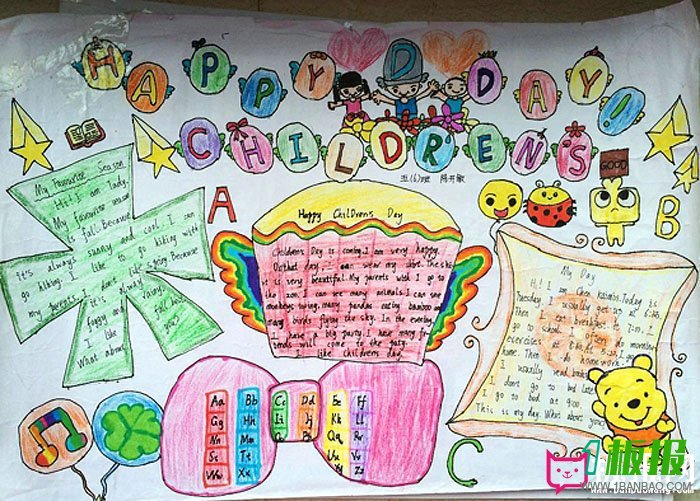 HAPPY DDAY!
CHILDREN'S
GOOD
A
B
C
My Favourite Season
Hi! I am Lady.
My favourite season
is fall. Because
it's always sunny and cool. I can
go hiking. I like to go hiking with
my parents.
I like
What about
Happy Childrens Day
Childrens Day is coming. I am very happy.
On that day, wear my skirt. The ski
it is very beautiful. My parents wish I go to
the zoo. I can see many animals. I can see
monkeys swing, many pandas eating bamboo and
many birds flying the sky. In the evening,
I have a big party. I have many fri
ends will come to the party.
I like childrens day.
My Day
Hi! I am Chen Today is
Tuesday. I usually get up at 6:45.
Then I eat breakfast to 7:10. I
go to school. I often do morning
exercises at
home. Then I do homework.
I usually read books
I don't go to bed late
I go to bed at 9:00
This is my day. What about you?
Aa Bb Cc Dd Ee Ff
Gg Hh Ii Jj Kk Ll
Mm Nn Oo Pp Qq Rr
Ss Tt Uu Vv
Ww Xx Yy Zz
板报
WWW.1BANBAO.COM